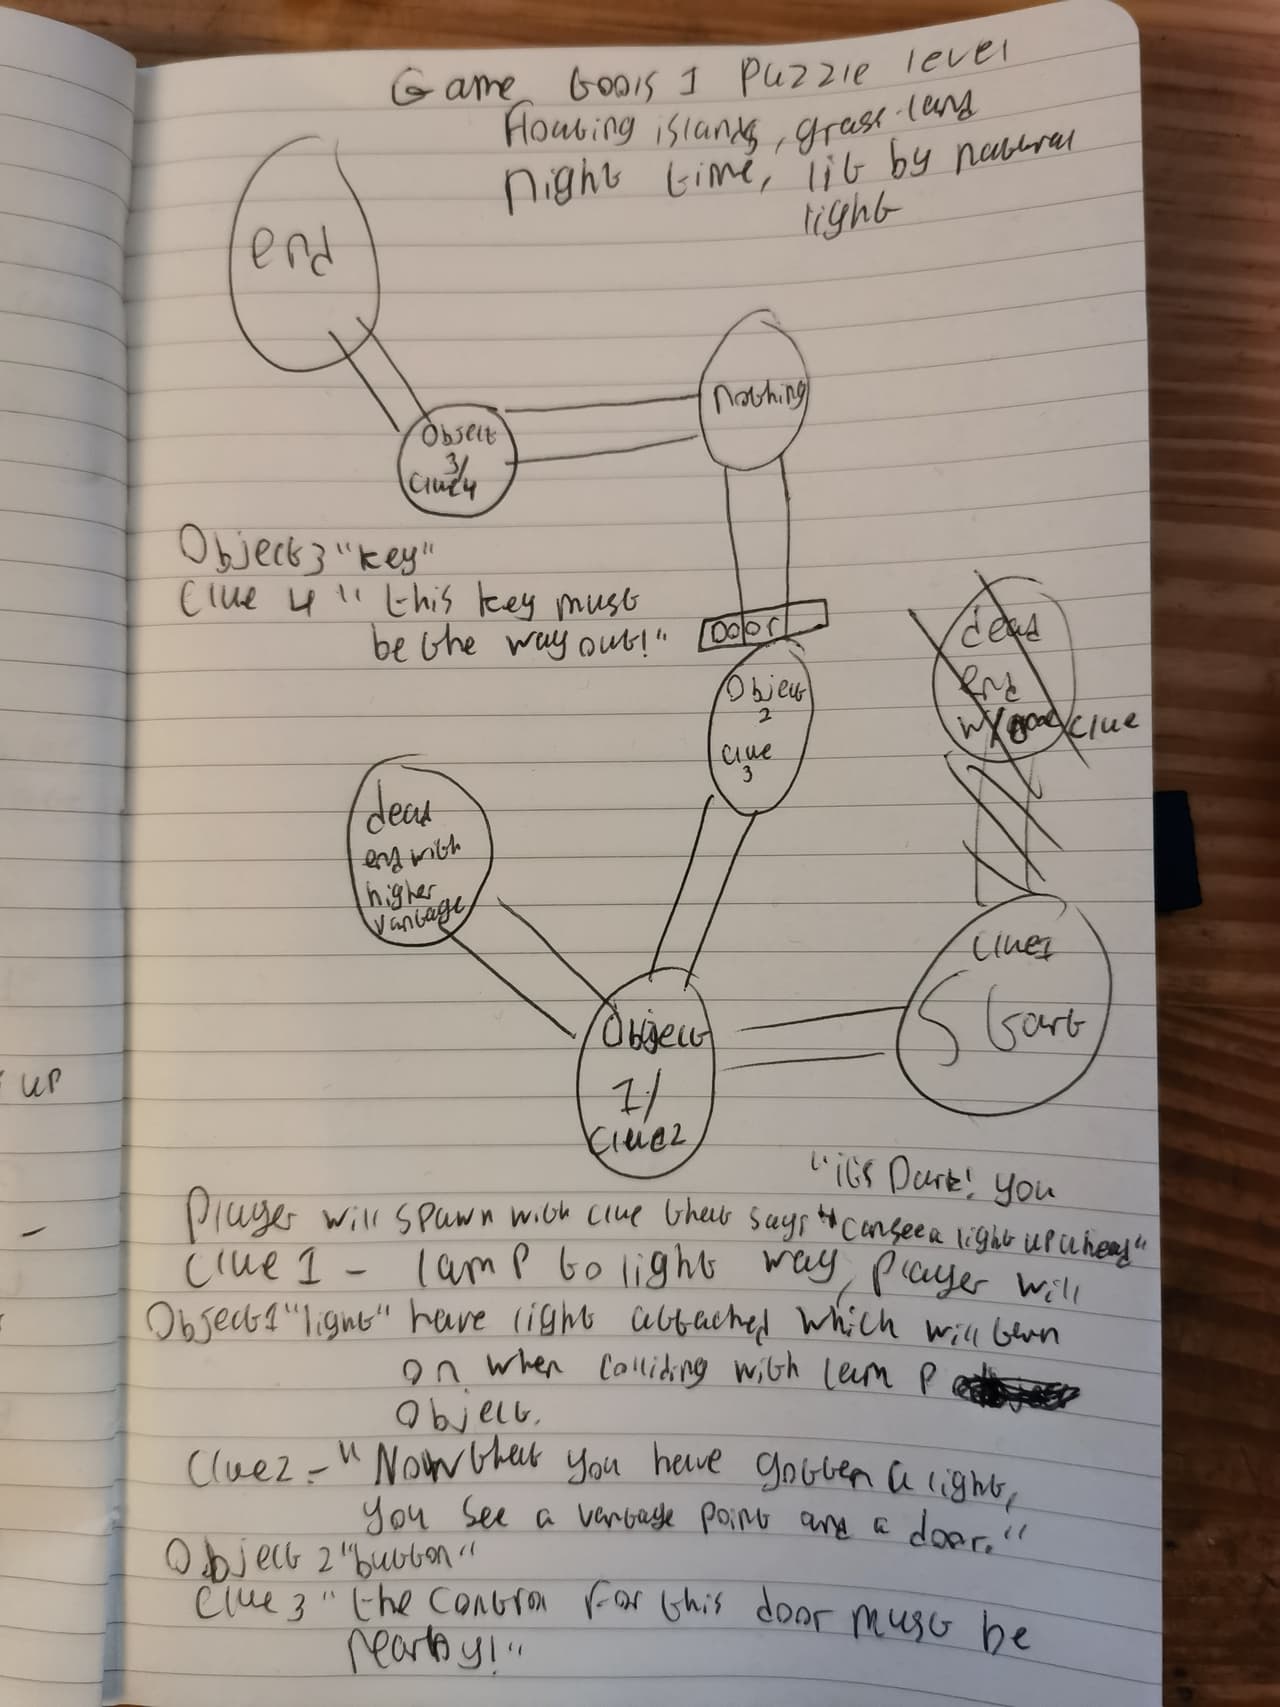 Game tools 1 puzzle level
floating islands, grass-land
night time, lit by natural
light
end
nothing
Object
3/
Clue 4
Object 3 "key"
Clue 4 "this key must
be the way out!"
Door
Object
2
clue
3
dead
end
w/ clue
dead
end with
higher
vantage
Clue 1
Start
Object
1/
Clue 2
up
"it's Dark! you
Player will spawn with clue that says "can see a light up ahead"
Clue 1 - lamp to light way, player will
Object 1 "light" have light attached which will turn
on when colliding with lamp
Object.
Clue 2 - "Now that you have gotten a light,
you see a vantage point and a door."
Object 2 "button"
Clue 3 "the control for this door must be
nearby!"